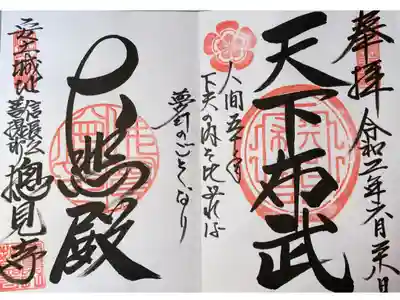 奉拝
令和二年六月 日
天下布武
人間五十年
下天の内を比ぶれば
夢幻のごとくなり
殿
安土城址
信長公
菩提所
摠見寺